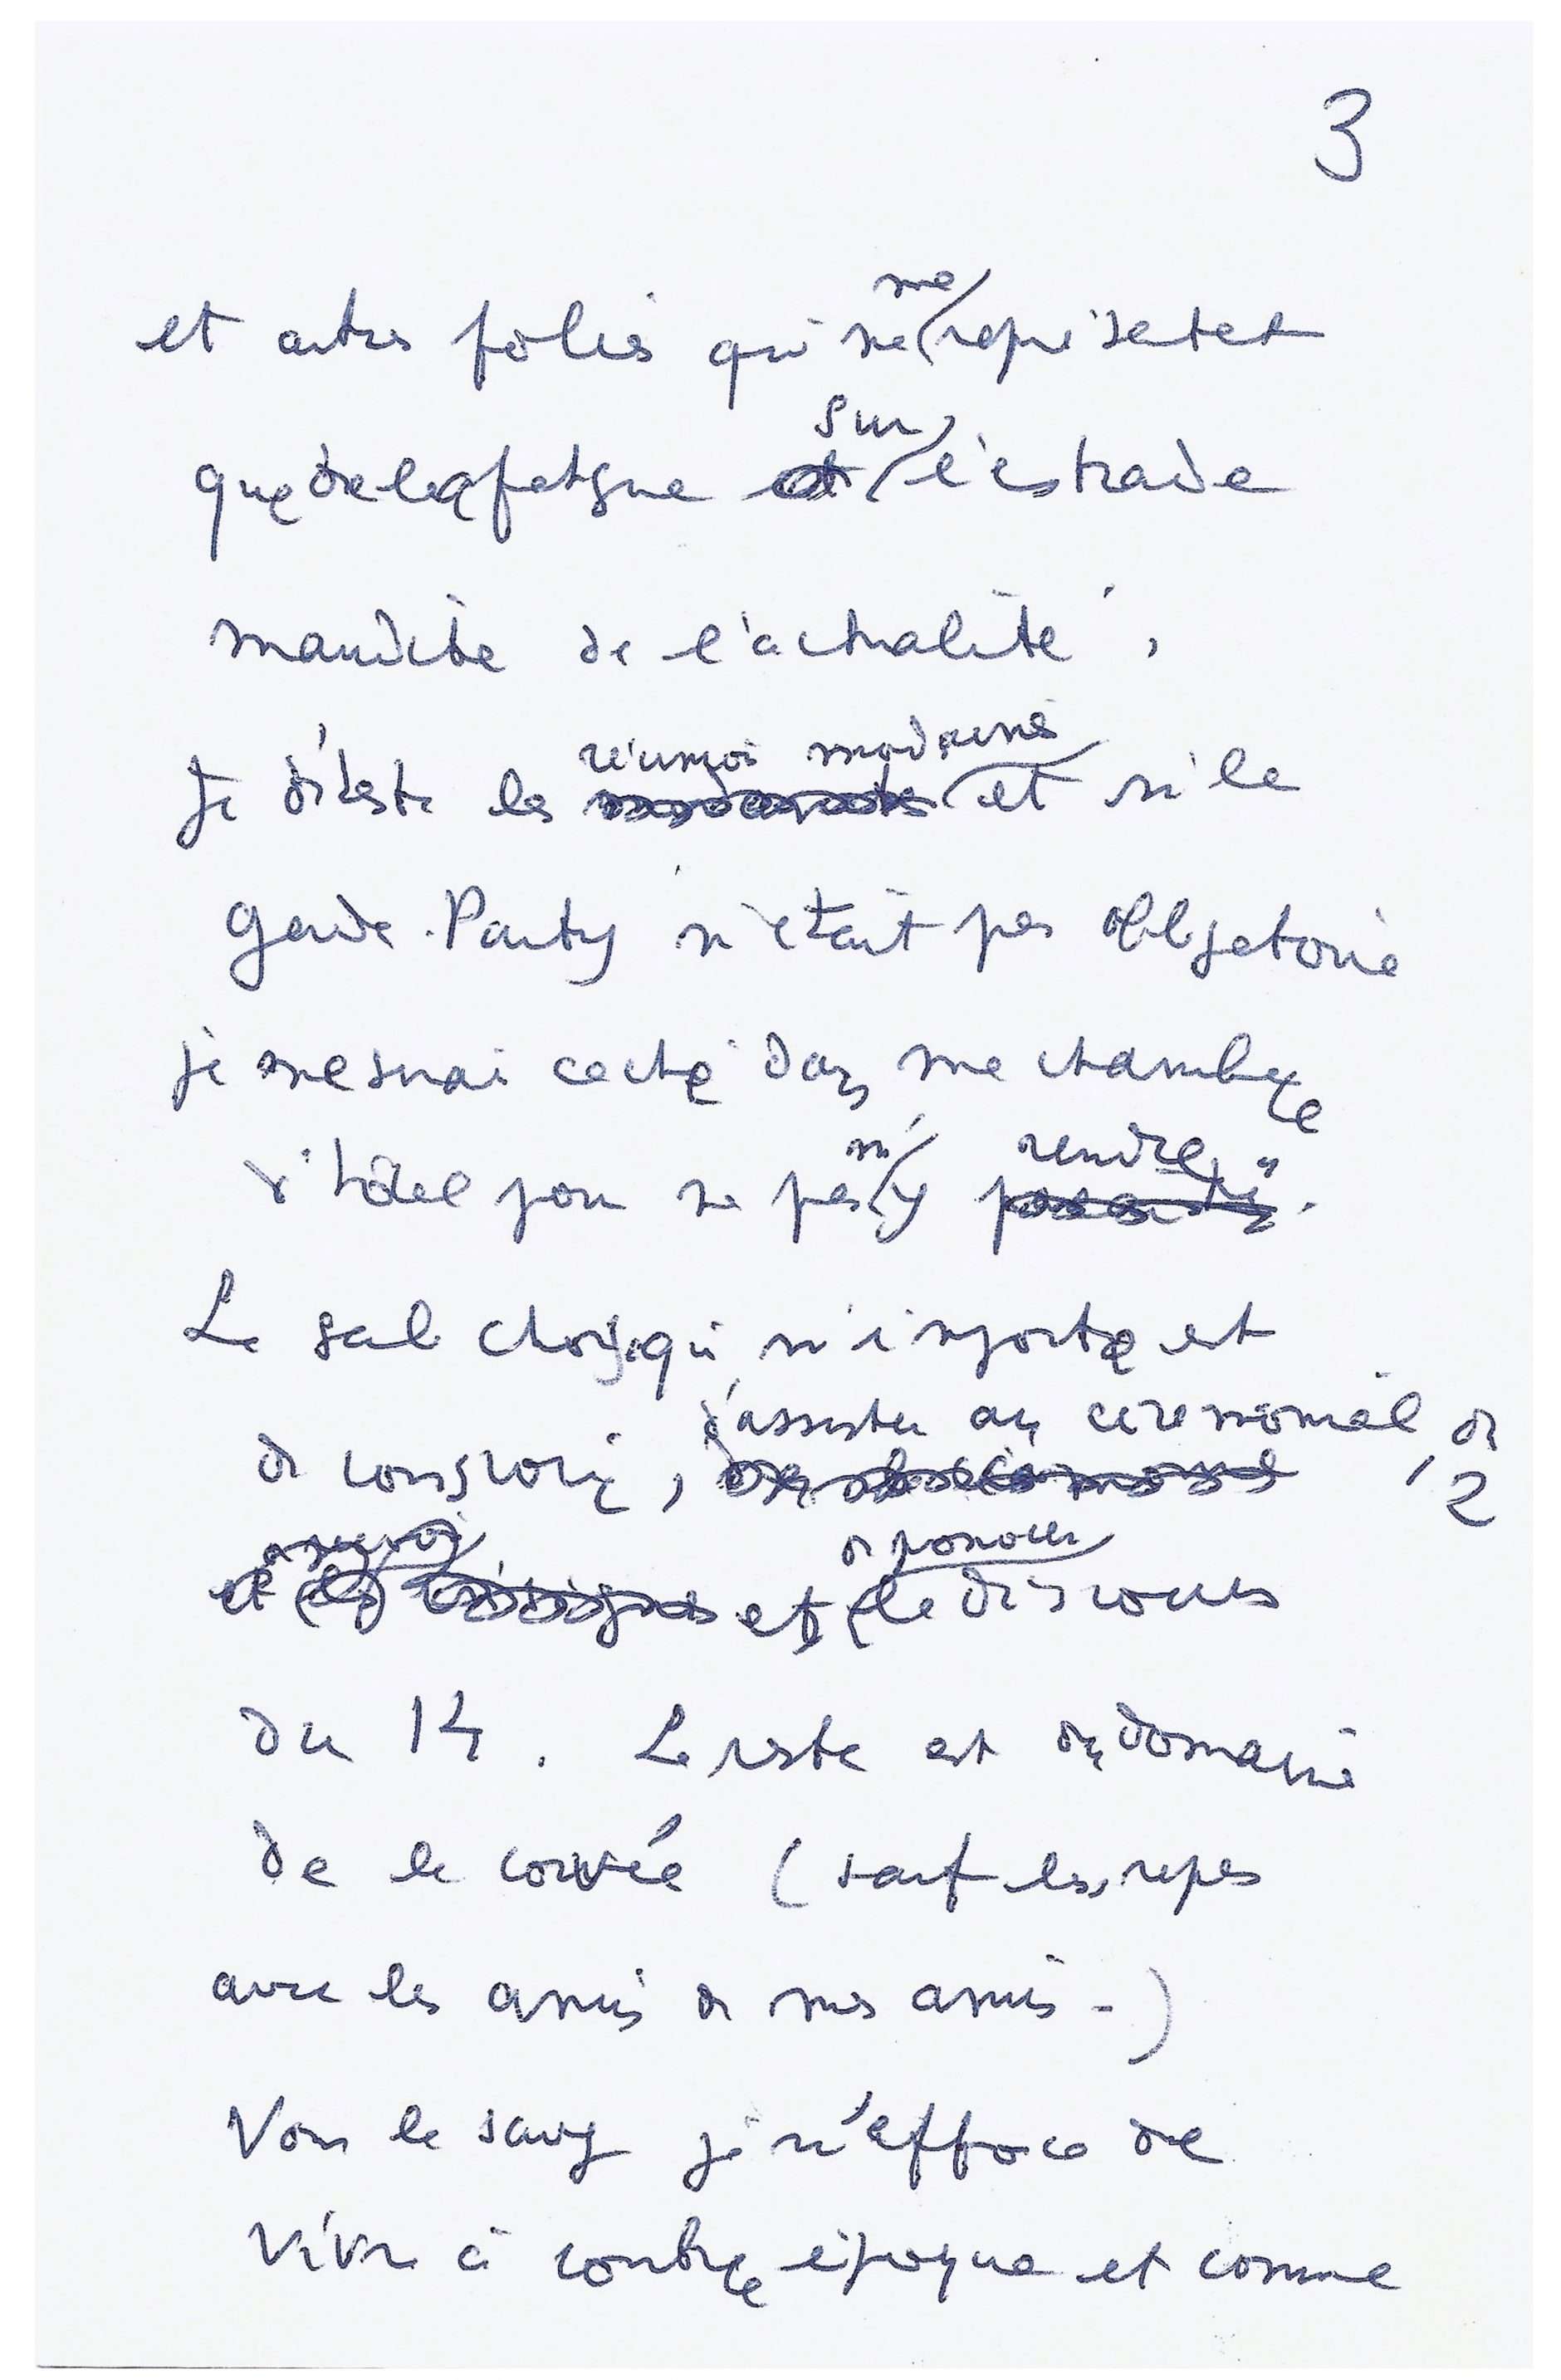 3
et autres folies qui ne me représentent
que de la fatigue sur l'estrade
maudite de l'actualité,
Je déteste les réunions modernes et si le
Garden-Party n'était pas obligatoire
je me serai caché dans ma chambre
d'hôtel pour ne pas m'y rendre.
La seule chose qui m'importe est
de
d'assister au cérémonial de
2
et de prononcer le discours
du 14. Le reste est du domaine
de la corvée (sauf les repas
avec les amis de mes amis -)
Vous le savez je m'efforce de
vivre à contre époque et comme